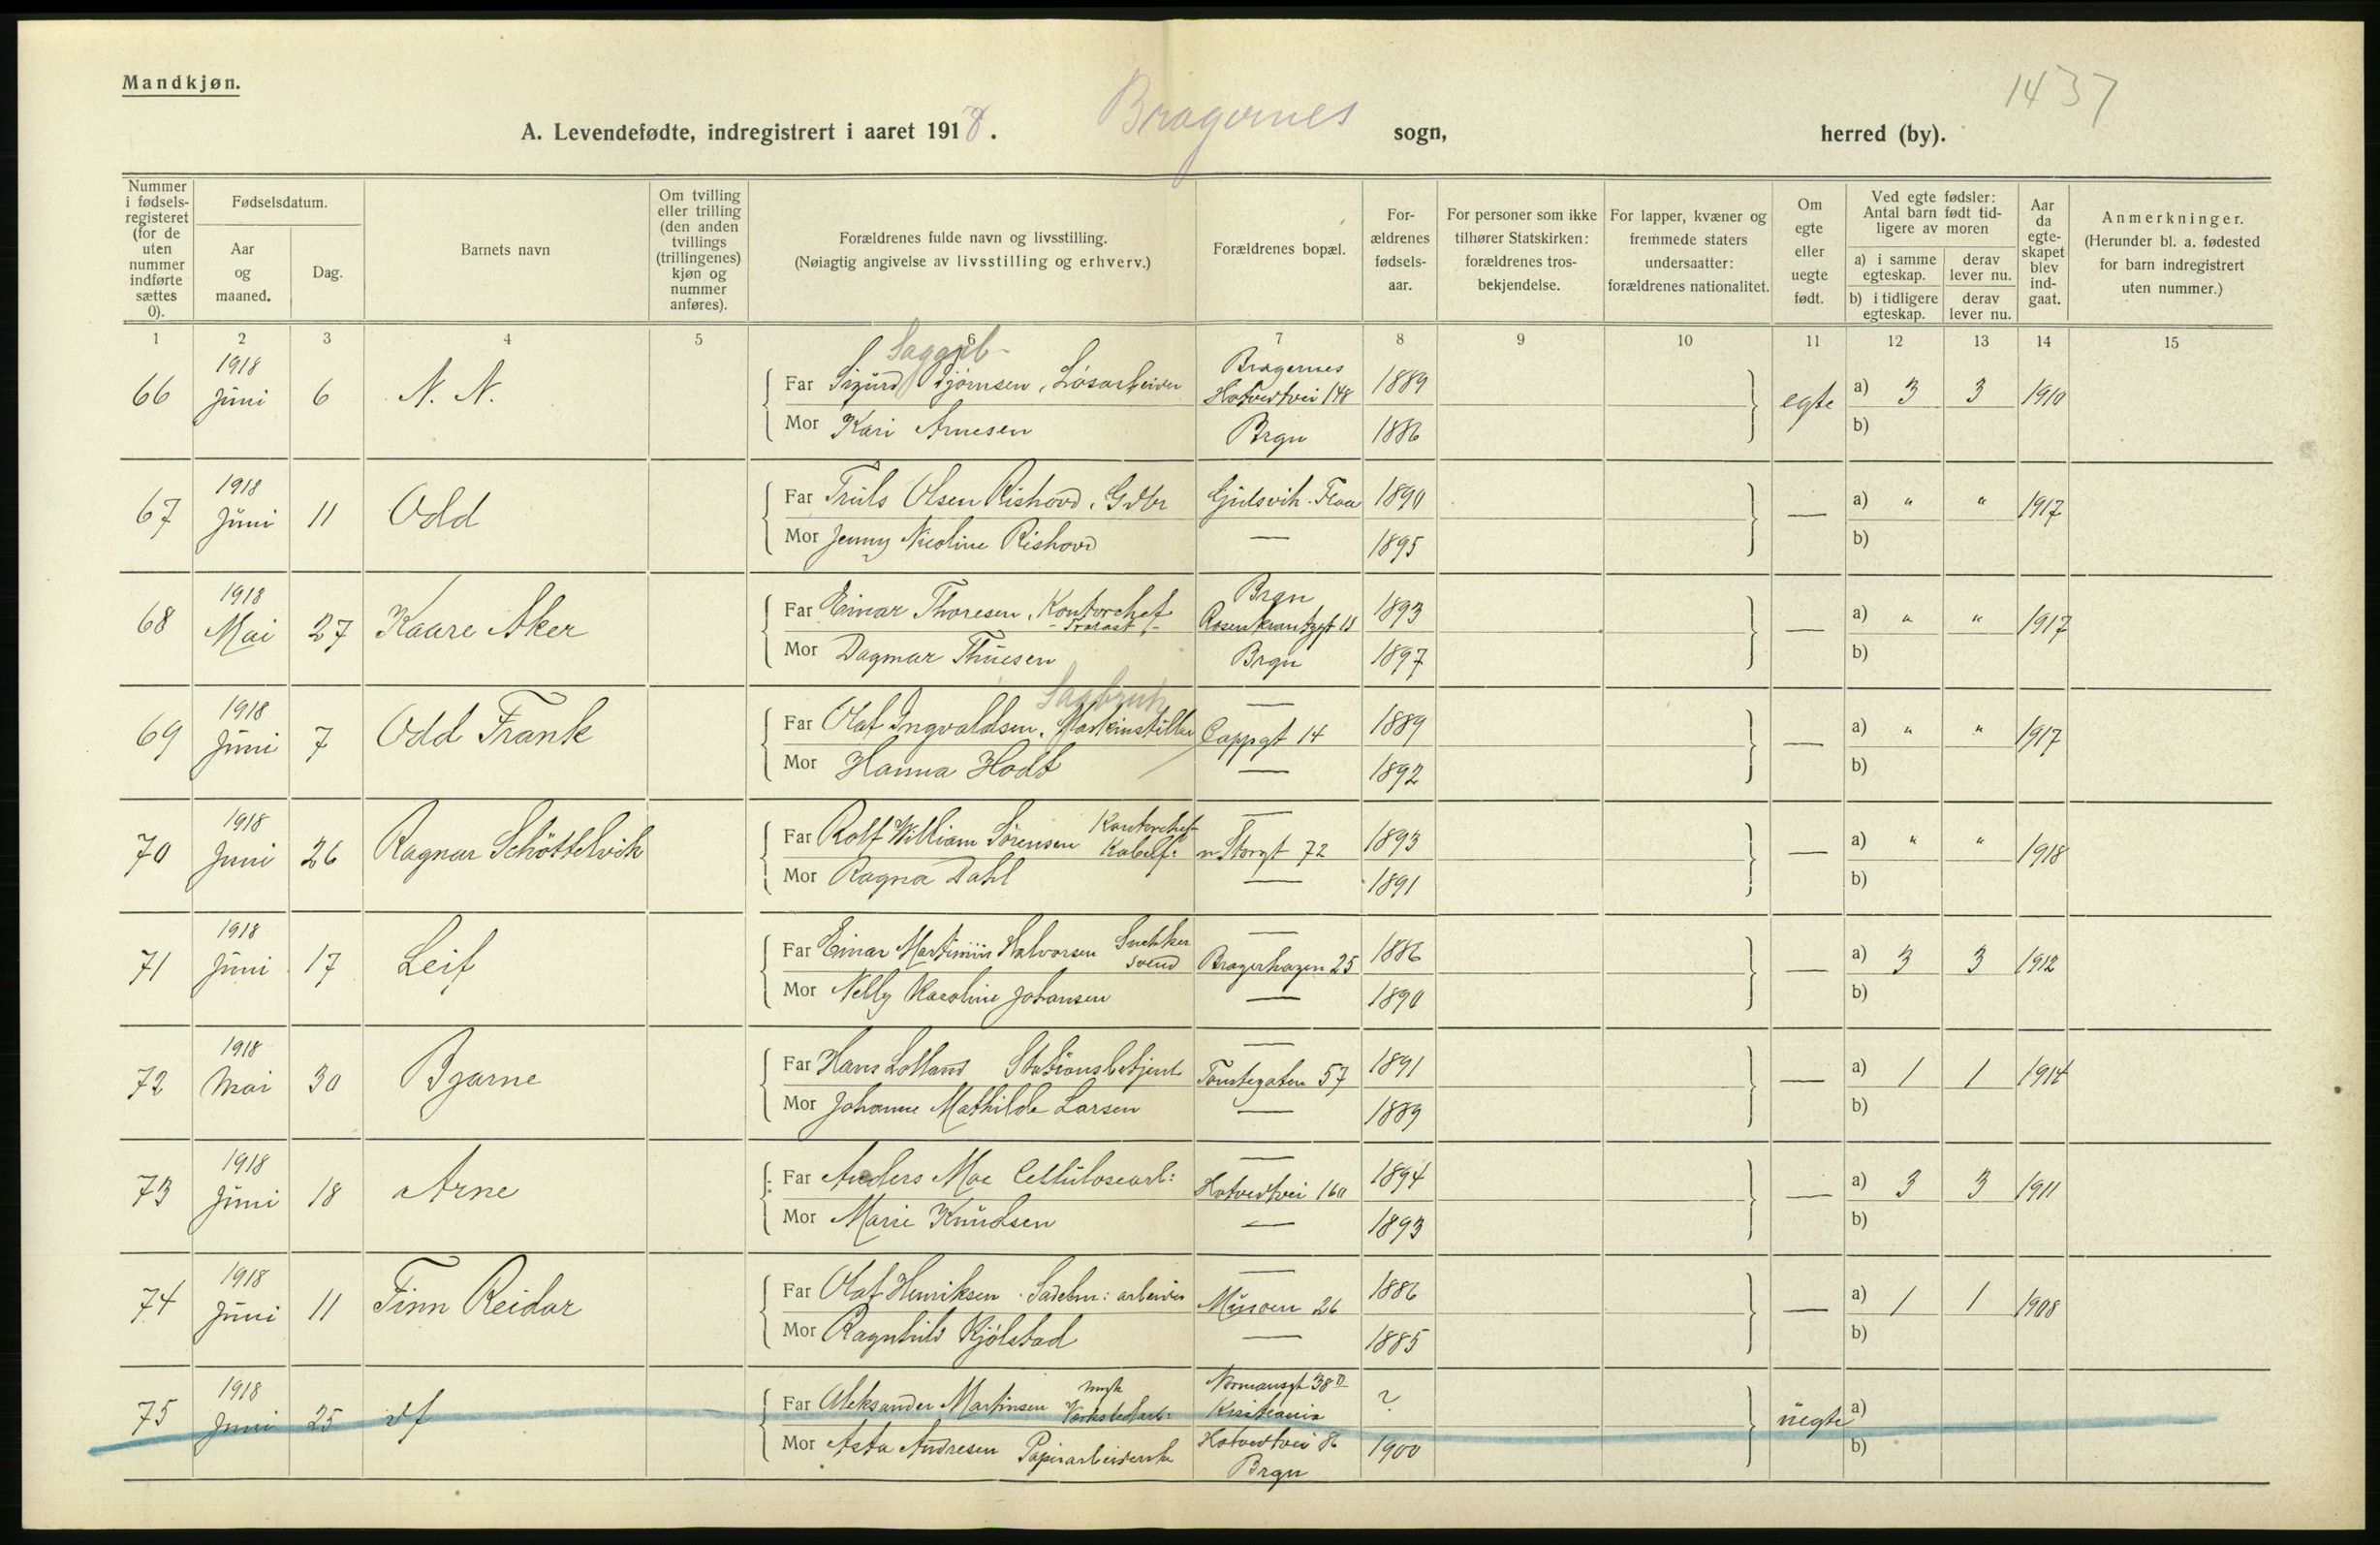 Mandkjøn.
1437
A. Levendefødte, indregistrert i aaret 1918. Bragernes sogn, herred (by).
Nummer i fødselsregisteret (for de uten nummer indførte sættes 0).
Fødselsdatum.
Aar og maaned.
Dag.
Barnets navn
Om tvilling eller trilling (den anden tvillings (trillingenes) kjøn og nummer anføres).
Forældrenes fulde navn og livsstilling.
(Nøiagtig angivelse av livsstilling og erhverv.)
Forældrenes bopæl.
Forældrenes fødselsaar.
For personer som ikke tilhører Statskirken: forældrenes trosbekjendelse.
For lapper, kvæner og fremmede staters undersaatter: forældrenes nationalitet.
Om egte eller uegte født.
Ved egte fødsler: Antal barn født tidligere av moren
a) i samme egteskap.
derav lever nu.
b) i tidligere egteskap.
derav lever nu.
Aar da egteskapet blev indgaat.
Anmerkninger.
(Herunder bl. a. fødested for barn indregistrert uten nummer.)
1 2 3 4 5 6 7 8 9 10 11 12 13 14 15
66 1918 Juni 6 N. N.
Far Sigurd Bjørnsen, Løsarbeider Bragernes Hotvedtvei 148 1889 egte a) 3 3 1910
Mor Kari Arnesen Brgn 1886 b)
67 1918 Juni 11 Odd
Far Truls Olsen Rishovd, Gdbr Gulsvik Flaa 1890 — a) " " 1917
Mor Jenny Nicoline Rishovd — 1895 b)
68 1918 Mai 27 Kaare Aker
Far Einar Thoresen, Kontorchef Brgn Rosenkrantzgt 18 1893 — a) " " 1917
Mor Dagmar Thuesen Brgn 1897 b)
Sagbruk
69 1918 Juni 7 Odd Frank
Far Olaf Ingvaldsen, Maskinstiller — Cappgt 14 1889 — a) " " 1917
Mor Hanna Hodt — 1892 b)
70 1918 Juni 26 Ragnar Schøttelvik
Far Rolf William Sørensen Kontorchef Kabelf: — n. Storgt 72 1893 — a) " " 1918
Mor Ragna Dahl — 1891 b)
71 1918 Juni 17 Leif
Far Einar Martinius Halvorsen Snekker svend — Bragerhagen 25 1886 — a) 3 3 1912
Mor Nelly Karoline Johansen — 1890 b)
72 1918 Mai 30 Bjarne
Far Hans Lolland Stationsbetjent — Tomtegaten 57 1891 — a) 1 1 1914
Mor Johanne Mathilde Larsen — 1889 b)
73 1918 Juni 18 Arne
Far Anders Moe Cellulosearb: — Hotvedtvei 160 1894 — a) 3 3 1911
Mor Marie Knudsen — 1893 b)
74 1918 Juni 11 Finn Reidar
Far Olaf Henriksen Sadelm: arbeider — 26 1886 — a) 1 1 1908
Mor Ragnhild Kjølstad — 1885 b)
75 1918 Juni 25
Far Aleksander Martinsen Verkstedarb: Normansgt 38 Kristiania ? uegte a)
Mor Asta Andresen Papirarbeiderske Hotvedtvei 86 Brgn 1900 b)